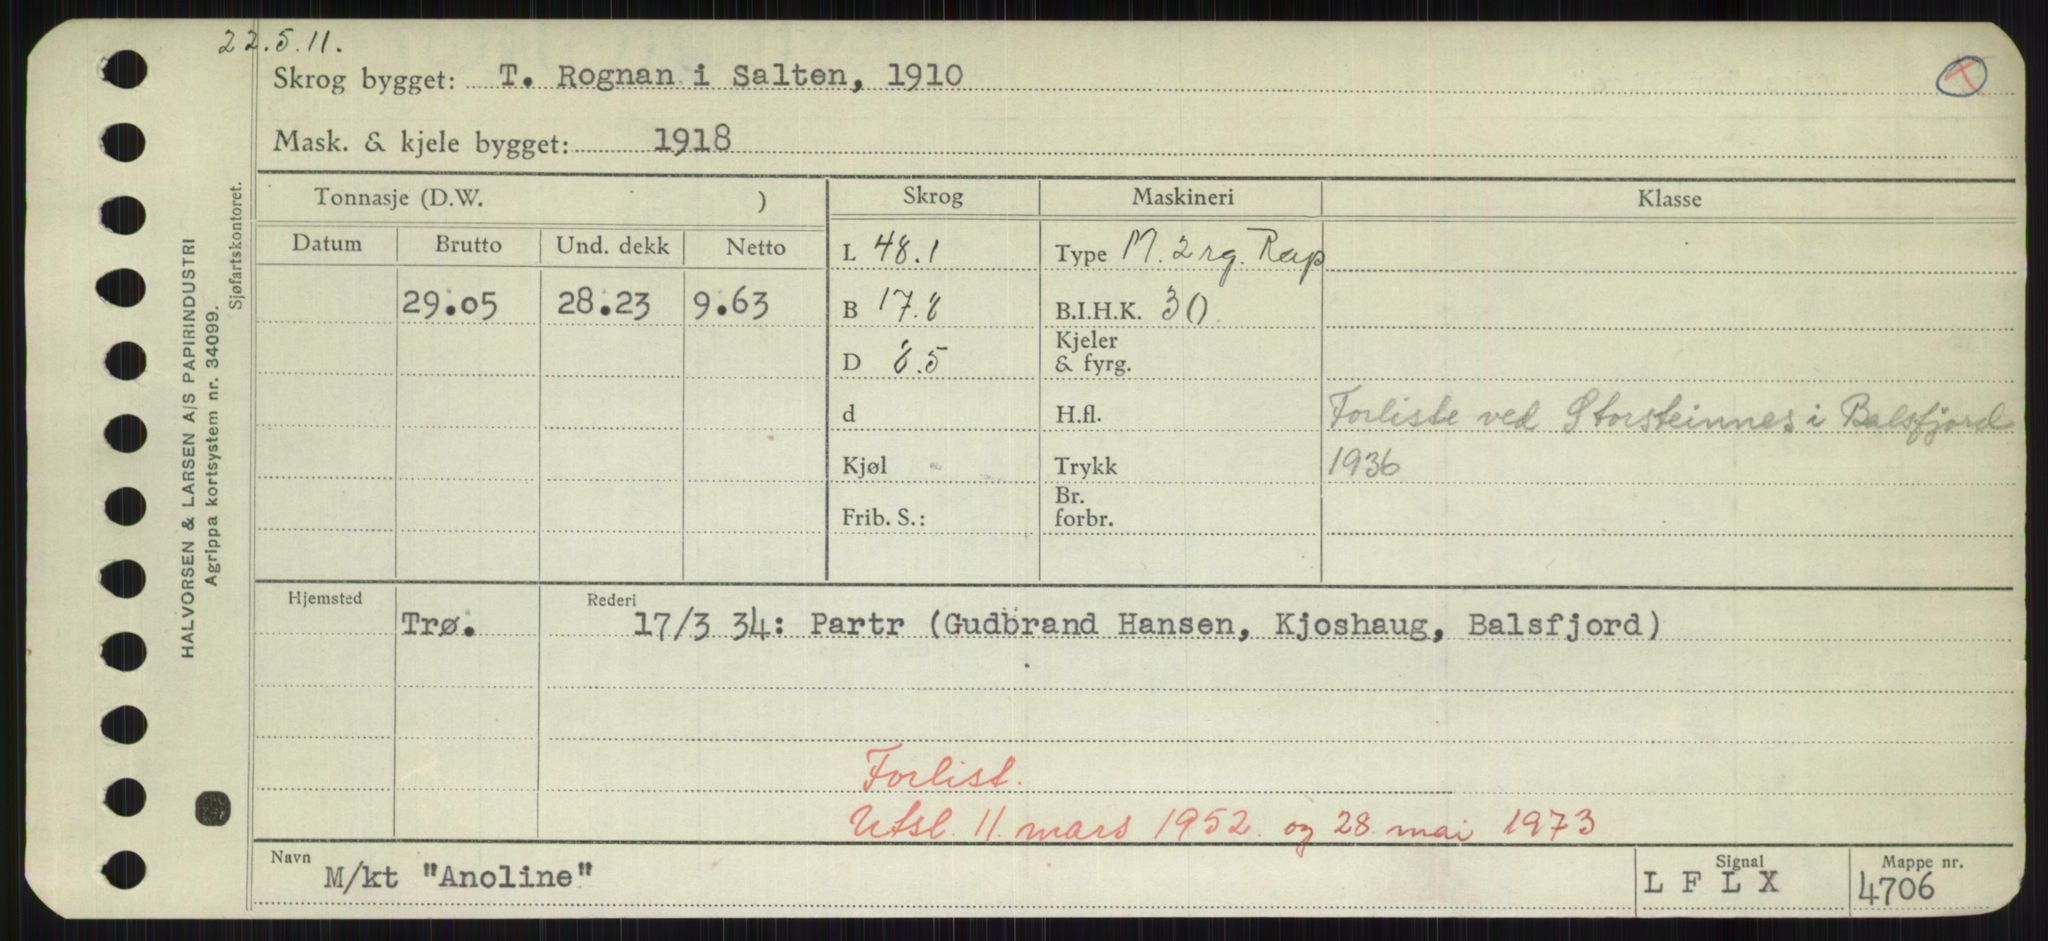 22.5.11.
Skrog bygget: T. Rognan i Salten, 1910
Mask. & kjele bygget: 1918
Tonnasje (D.W. ) Skrog Maskineri Klasse
Datum Brutto Und. dekk Netto L 48.1 Type M. 2 rg. Rap
29.05 28.23 9.63 B 17.8 B.I.H.K. 30
D 8.5 Kjeler & fyrg.
d H.fl. Forliste ved Storsteinnes i Balsfjord
Kjøl Trykk 1936
Frib. S.: Br. forbr.
Hjemsted Trø. Rederi 17/3 34: Partr (Gudbrand Hansen, Kjoshaug, Balsfjord)
Forlist.
Utsl. 11. mars 1952. og 28. mai 1973
Navn M/kt "Anoline" Signal L F L X Mappe nr. 4706
HALVORSEN & LARSEN A/S PAPIRINDUSTRI
Agrippa kortsystem nr. 34099.
Sjøfartskontoret.